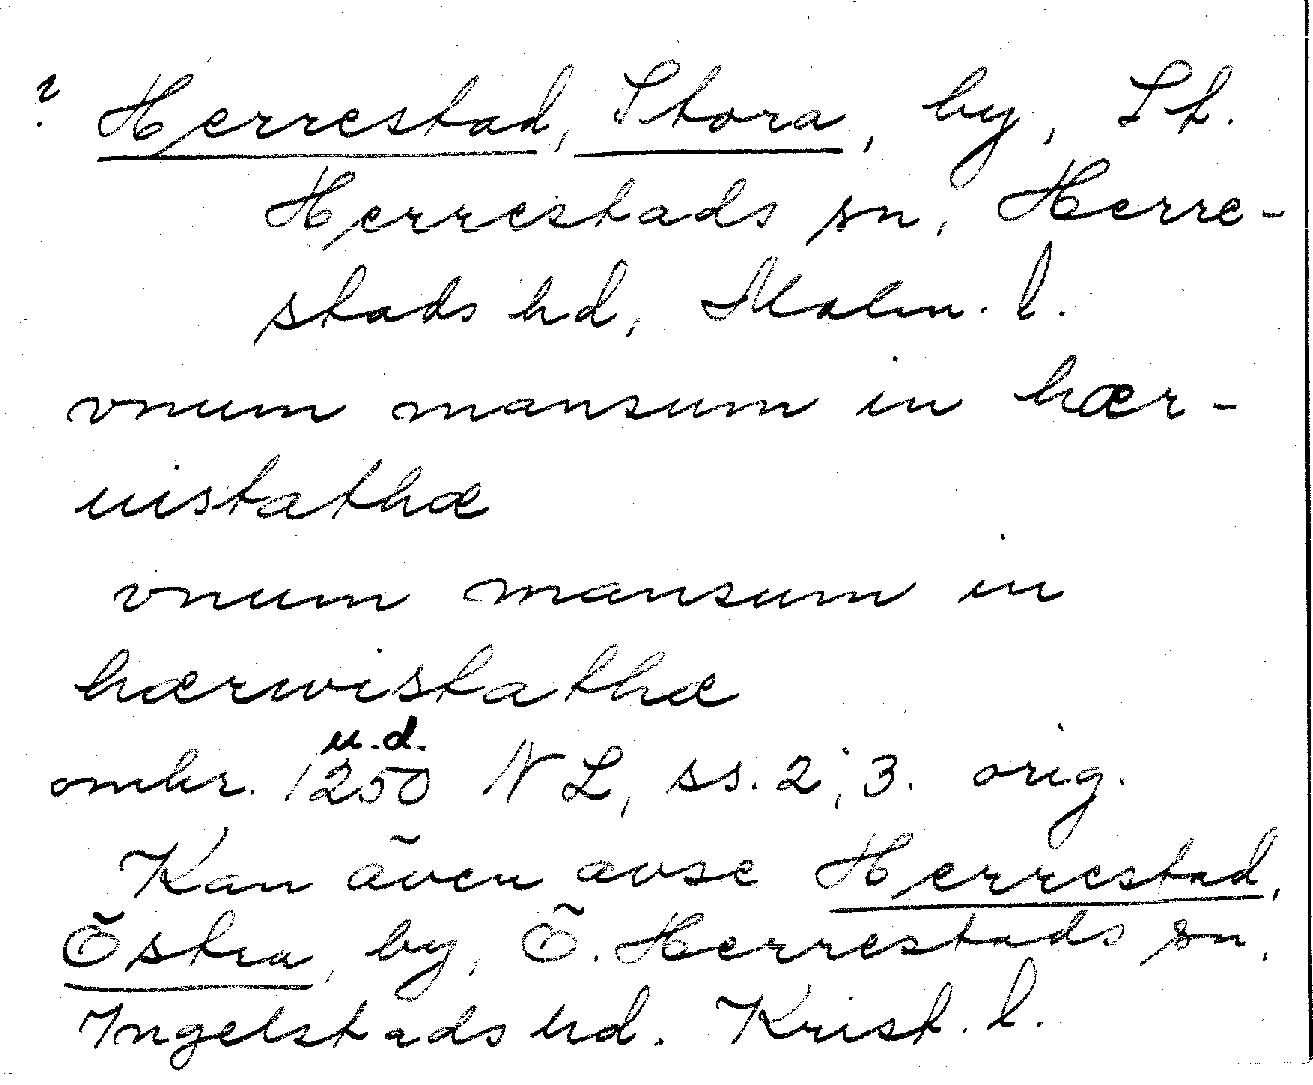 ? Herrestad, Stora, by, St.
Herrestads sn, Herre-
stads hd, Malm. l.
vnum mansum in hær-
uistathæ
vnum mansum in
hærwistathæ
u.d.
omkr. 1250 NL, ss. 2; 3. orig.
Kan även avse Herrestad,
Östra, by, Ö. Herrestads sn,
Ingelstads hd. Krist. l.